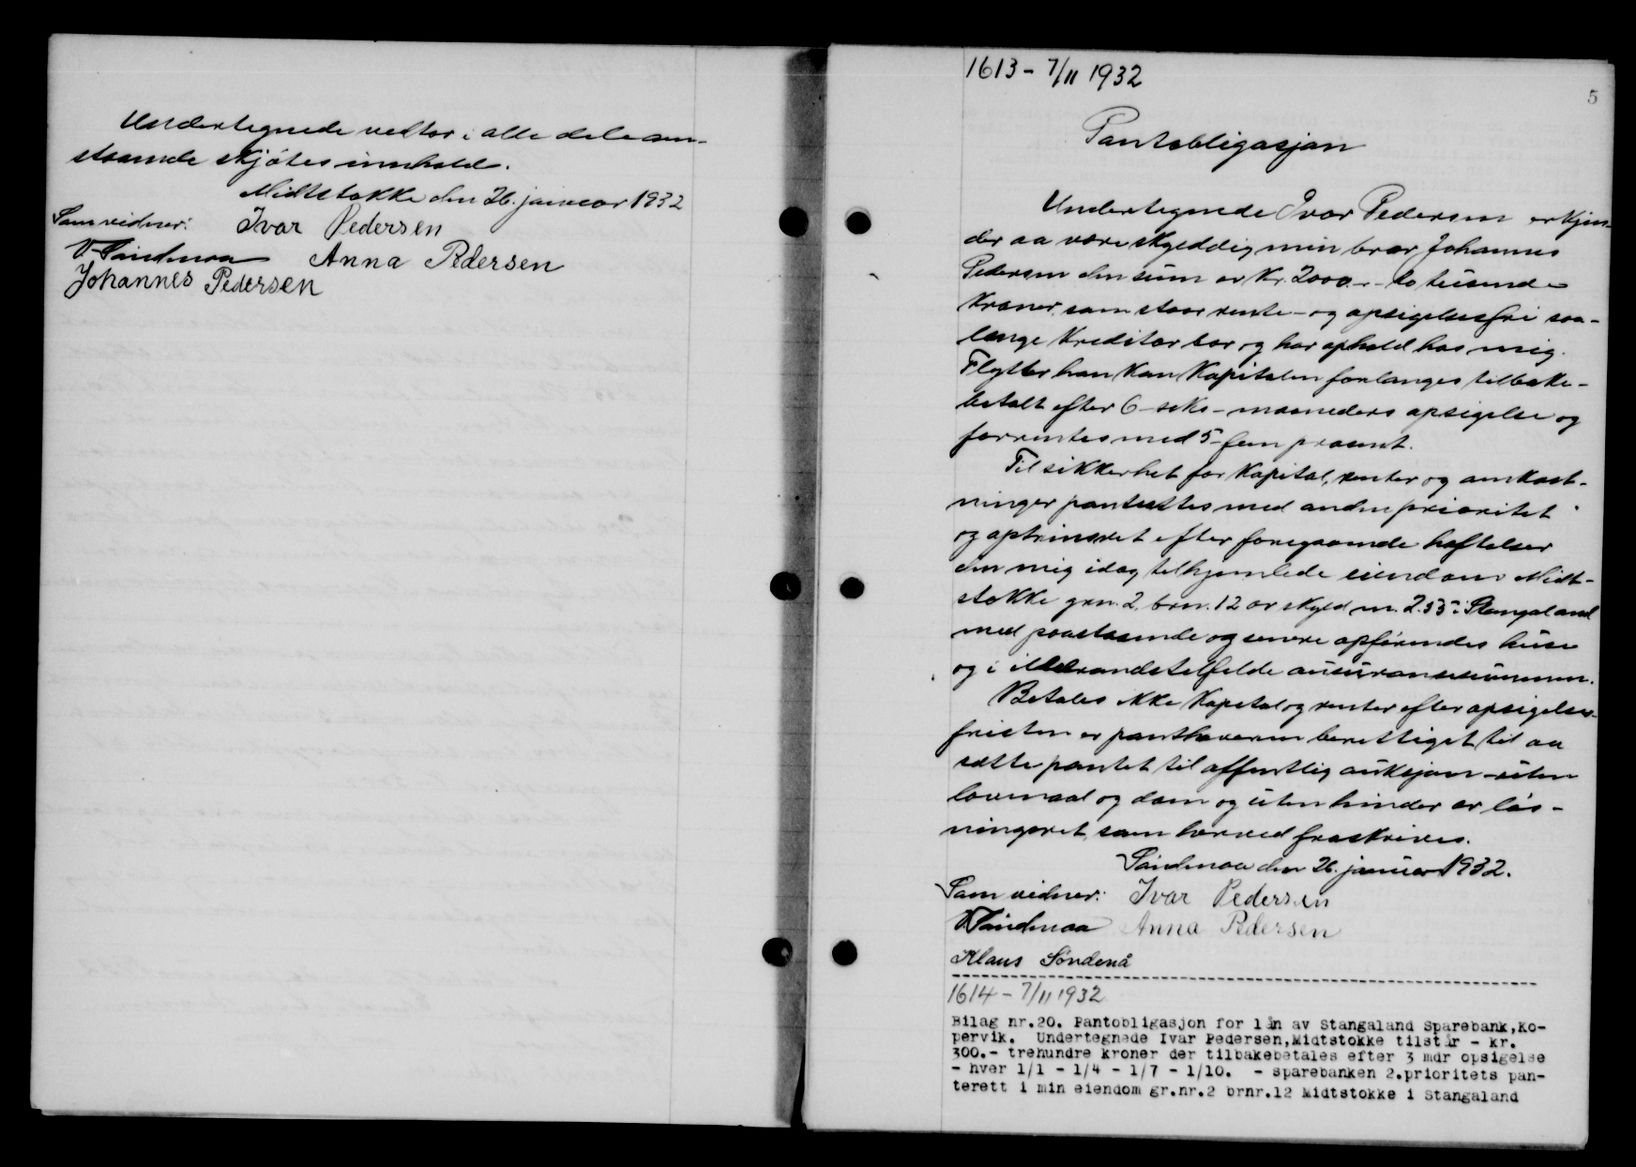 Undertegnede vedtar i alle dele oven-
staaende skjøtes innhold.
Midtstokke den 26. januar 1932
Som vidner: Ivar Pedersen
V. Søndenaa Anna Pedersen
Johannes Pedersen
1613 - 7/11 1932
5
Pantobligasjon
Undertegnede Ivar Pedersen erkjen-
der aa være skyldig min bror Johannes
Pedersen den sum av Kr. 2000.- - to tusende
kroner, som staar rente- og opsigelsesfri saa-
lenge kreditor bor og har ophold hos mig.
Flytter han kan kapitalen forlanges tilbake-
betalt efter 6 - seks - maaneders opsigelse og
forrentes med 5 - fem prosent.
Til sikkerhet for kapital, renter og omkost-
ninger pantsettes med anden prioritet
og optrinsret efter foregaaende heftelser
den mig idag tilhjemlede eiendom Midt-
stokke grn. 2, brn. 12 av skyld m. 2.53 i Stangaland
med paastaaende og senere opførendes huse
og i ildebrandstilfelde assuransesummen.
Betales ikke kapital og renter efter opsigelses-
fristen er panthaveren berettiget til aa
sætte pantet til offentlig auksjon uten
lovmaal og dom og uten hinder av løs-
ningsret, som herved fraskrives.
Søndenaa den 26. januar 1932.
Som vidner: Ivar Pedersen
V. Søndenaa Anna Pedersen
Klaus Søndenå
1614 - 7/11 1932
Bilag nr.20. Pantobligasjon for lån av Stangaland Sparebank,Ko-
pervik. Undertegnede Ivar Pedersen,Midtstokke tilstår - kr.
300.- trehundre kroner der tilbakebetales efter 3 mdr opsigelse
- hver 1/1 - 1/4 - 1/7 - 1/10. - sparebanken 2.prioritets pan-
terett i min eiendom gr.nr.2 brnr.12 Midtstokke i Stangaland